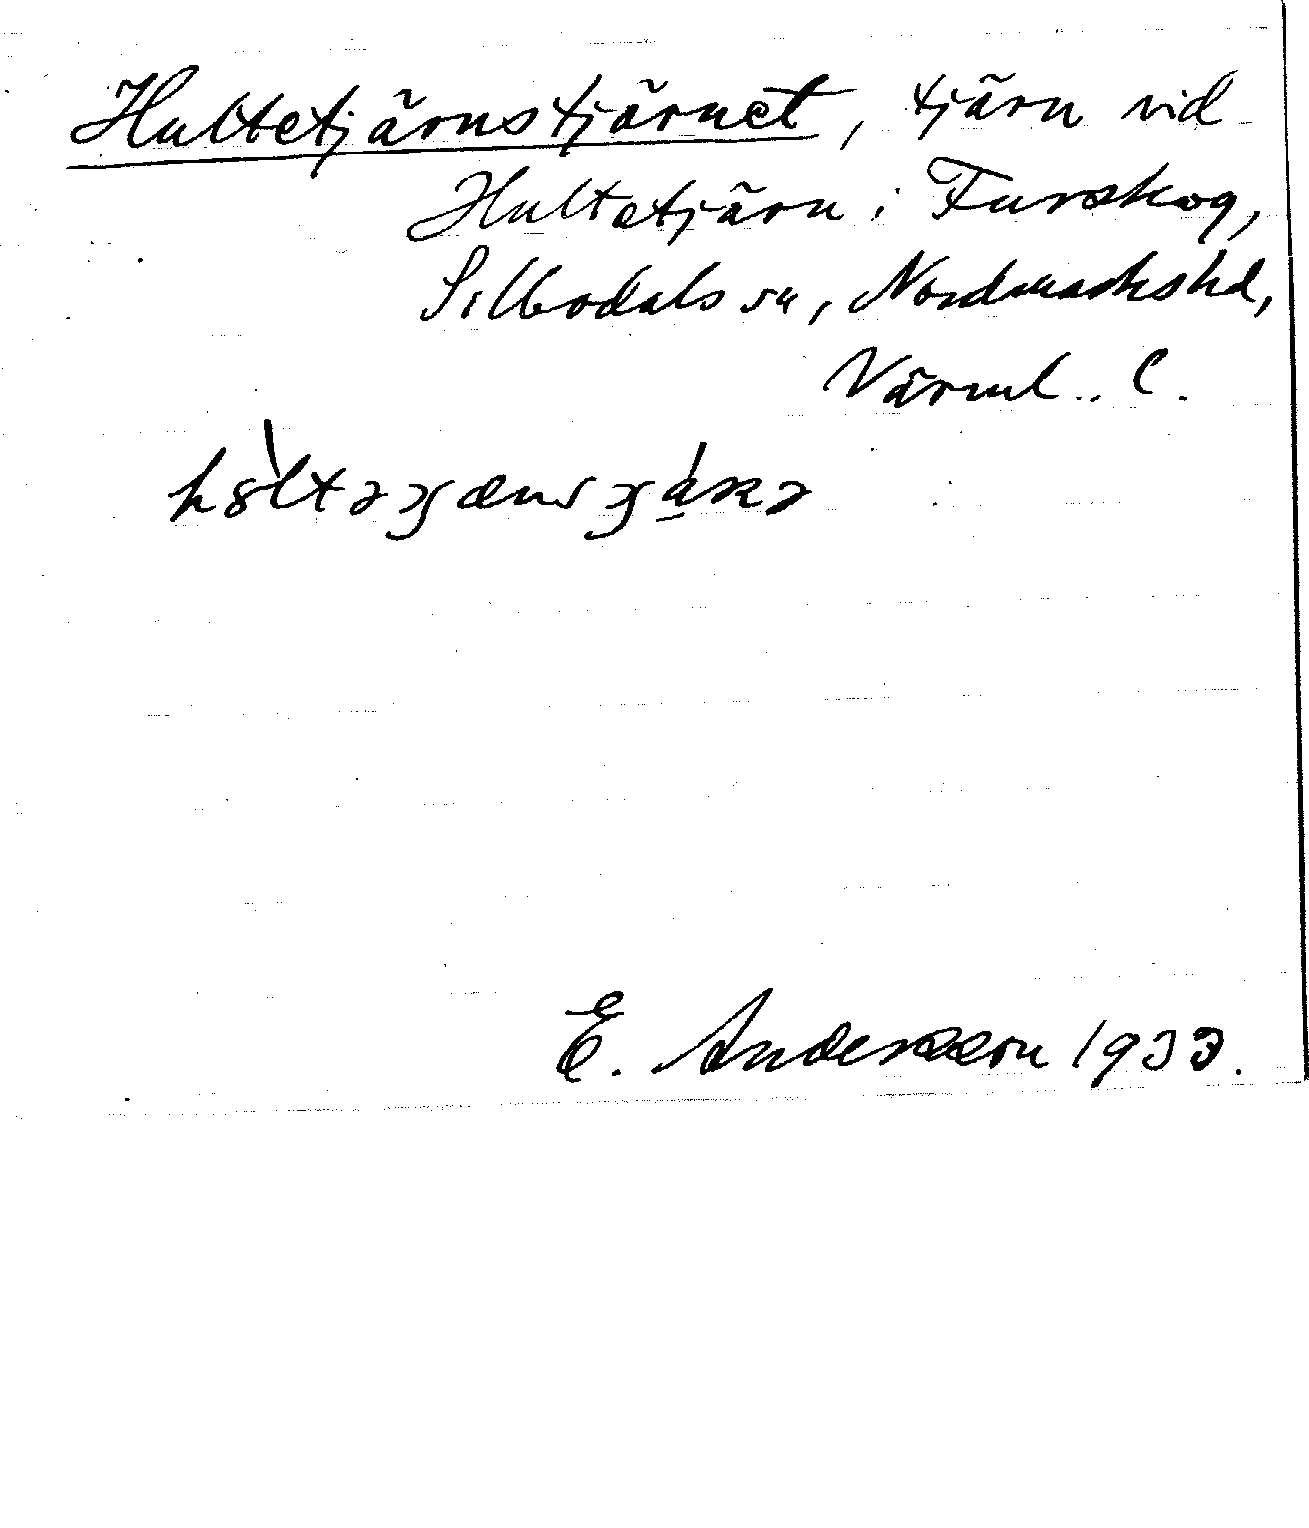 Hultetjärnstjärnet, tjärn vid
Hultetjärn i Furskog,
Silbodals sn, Nordmarks hd,
Värml. l.
E. Andersson 1933.